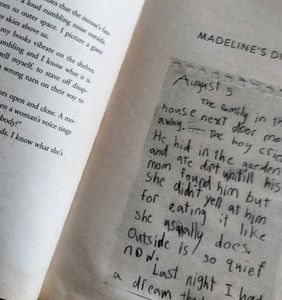 that the mouse's fan
a loud rumbling noise outside.
oes to outer space. I picture a giant
e skies above us.
my books vibrate on the shelves.
mbling and I know what it is.
tell myself, to stave off disap-
wrong turn on their way to
ors open and close. A mo-
en a woman's voice sings
body!"
ds. I know what she's
MADELINE'S D
August 5
The family in th
house next door mo
away. The boy crie
He hid in the garden
and ate dirt untill his
mom found him but
she didn't yell at him
for eating it like
she usually does.
Outside is so quiet
now.
Last night I had
a dream tha